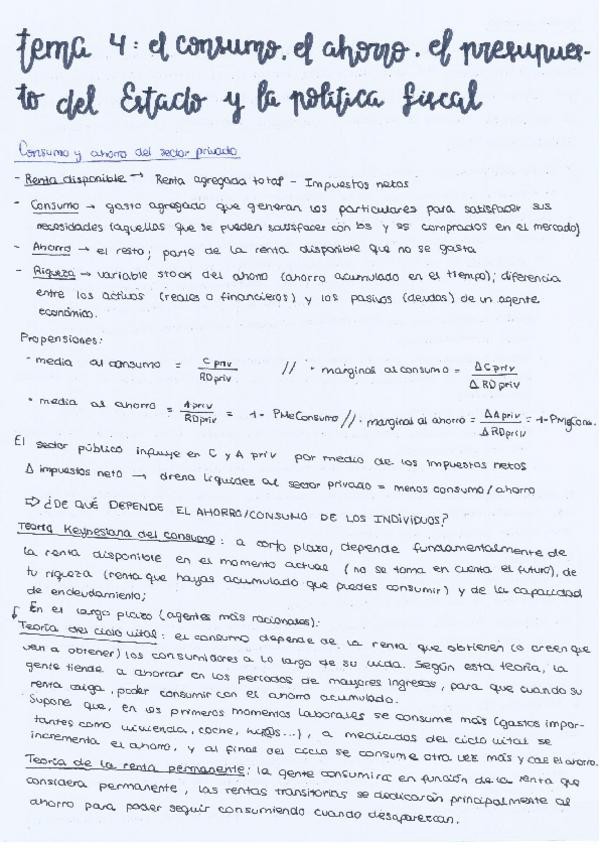 tema 4: el consumo, el ahorro, el presupues-
to del Estado y la política fiscal
Consumo y ahorro del sector privado
- Renta disponible → Renta agregada total - Impuestos netos
- Consumo → gasto agregado que generan los particulares para satisfacer sus
necesidades (aquellas que se pueden satisfacer con bs y ss comprados en el mercado)
- Ahorro → el resto; parte de la renta disponible que no se gasta
- Riqueza → variable stock del ahorro (ahorro acumulado en el tiempo); diferencia
entre los activos (reales o financieros) y los pasivos (deudas) de un agente
económico.
Propensiones:
- media al consumo = C priv / RD priv // · marginal al consumo = Δ C priv / Δ RD priv
· media al ahorro = A priv / RD priv = 1 - PMeConsumo // · marginal al ahorro = ΔA priv / Δ RD priv = 1 - PMgCons.
El sector público influye en C y A priv por medio de los impuestos netos
Δ impuestos neto → drena liquidez al sector privado = menos consumo/ahorro
⇨ ¿DE QUÉ DEPENDE EL AHORRO/CONSUMO DE LOS INDIVIDUOS?
Teoría Keynesiana del consumo: a corto plazo, depende fundamentalmente de
la renta disponible en el momento actual (no se toma en cuenta el futuro), de
tu riqueza (renta que hayas acumulado que puedes consumir) y de la capacidad
de endeudamiento;
En el largo plazo (agentes más racionales):
Teoría del ciclo vital: el consumo depende de la renta que obtienen (o creen que
van a obtener) los consumidores a lo largo de su vida. Según esta teoría, la
gente tiende a ahorrar en los periodos de mayores ingresos, para que cuando su
renta caiga, poder consumir con el ahorro acumulado.
Supone que, en los primeros momentos laborales se consume más (gastos impor-
tantes como vivienda, coche, hij@s...), a mediados del ciclo vital se
incrementa el ahorro, y al final del ciclo se consume otra vez más y cae el ahorro.
Teoría de la renta permanente: la gente consumirá en función de la renta que
considera permanente, las rentas transitorias se dedicarán principalmente al
ahorro para poder seguir consumiendo cuando desaparezcan.